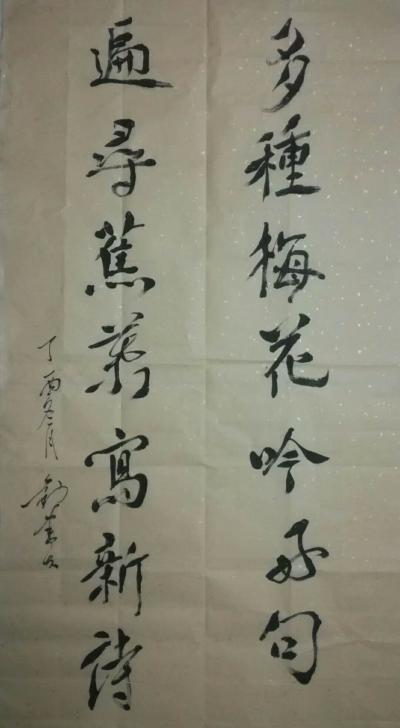 多種梅花吟好句
遍尋蕉葉寫新詩
丁酉冬月